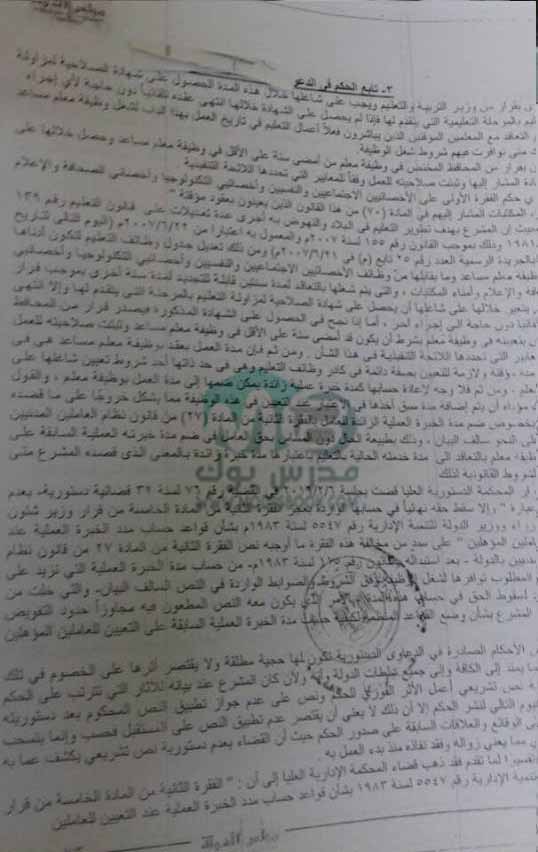 مجلس الدولة
٣- تابع الحكم في الدعو
بقرار من وزير التربية والتعليم ويجب على شاغلها خلال هذه المدة الحصول على شهادة الصلاحية لمزاولة
والمرحلة التعليمية التي يتقدم لها فإذا لم يحصل على الشهادة خلالها انتهى عقده تلقائيا دون حاجة لأي إجراء
التعاقد مع المعلمين المؤقتين الذين يباشرون فعلا أعمال التعليم في تاريخ العمل بهذا الباب لشغل وظيفة معلم مساعد
متى توافرت فيهم شروط شغل الوظيفة
بقرار من المحافظ المختص في وظيفة معلم من أمضى سنة على الأقل في وظيفة معلم مساعد وحصل خلالها على
المشار إليها وتثبت صلاحيته للعمل وفقا للمعايير التي تحددها اللائحة التنفيذية
حكم الفقرة الأولى على الأخصائيين الاجتماعيين والنفسيين وأخصائيي التكنولوجيا وأخصائي الصحافة والإعلام
المكتبات المشار إليهم في المادة (٧٠) من هذا القانون الذين يعينون بعقود مؤقتة "
إن المشرع بهدف تطوير التعليم في البلاد والنهوض به أجرى عدة تعديلات على قانون التعليم رقم ١٣٩
١٩٨١ وذلك بموجب القانون رقم ١٥٥ لسنة ٢٠٠٧ والمعمول به اعتبارا من ٢٠٠٧/٦/٢٢م (اليوم التالي لتاريخ
بالجريدة الرسمية العدد رقم ٢٥ تابع (م) في ٢٠٠٧/٦/٢١م) ومن ذلك تعديل جدول وظائف التعليم لتكون أدناها
وظيفة معلم مساعد وما يقابلها من وظائف الأخصائيين الاجتماعيين والنفسيين وأخصائيي التكنولوجيا وأخصائيي
والإعلام وأمناء المكتبات ، والتي يتم شغلها بالتعاقد لمدة سنتين قابلة للتجديد لمدة سنة أخرى بموجب قرار
يتعين خلالها على شاغلها أن يحصل على شهادة الصلاحية لمزاولة التعليم بالمرحلة التي يتقدم لها وإلا انتهى
دون حاجة إلى إجراء آخر ، أما إذا نجح في الحصول على الشهادة المذكورة فيصدر قرار من المحافظ
بتعيينه في وظيفة معلم بشرط أن يكون قد أمضى سنة على الأقل في وظيفة معلم مساعد وتثبت صلاحيته للعمل
التي تحددها اللائحة التنفيذية في هذا الشأن . ومن ثم فإن مدة العمل بعقد بوظيفة معلم مساعد هي في
ولازمة للتعيين بصفة دائمة في كادر وظائف التعليم وهي في حد ذاتها أحد شروط تعيين شاغلها على
ومن ثم فلا وجه لإعادة حسابها كمدة خبرة عملية زائدة يمكن ضمها إلى مدة العمل بوظيفة معلم ، والقول
مؤداه أن يتم إضافة مدة سبق أخذها في الاعتبار عند التعيين في هذه الوظيفة مما يشكل خروجا على ما قصده
بخصوص ضم مدة الخبرة العملية الزائدة للعامل بالفقرة الثانية من المادة (٢٧) من قانون نظام العاملين المدنيين
على النحو سالف البيان ، وذلك بطبيعة الحال دون المساس بحق العامل في ضم مدة خبرته العملية السابقة على
معلم بالتعاقد إلى مدة خدمته الحالية بالتعليم باعتبارها مدة خبرة زائدة بالمعنى الذي قصده المشرع متى
الشروط القانونية لذلك
المحكمة الدستورية العليا قضت بجلسة في القضية رقم ٧٦ لسنة ٣٢ قضائية دستورية- بعدم
عبارة " وإلا سقط حقه نهائيا في حسابها الواردة بعجز الفقرة الثانية من المادة الخامسة من قرار وزير شئون
الوزراء ووزير الدولة للتنمية الإدارية رقم ٥٥٤٧ لسنة ١٩٨٣م بشأن قواعد حساب مدد الخبرة العملية عند
المؤهلين " على سند من مخالفة هذه الفقرة ما أوجبه نص الفقرة الثانية من المادة ٢٧ من قانون نظام
المدنيين بالدولة - بعد استبداله بالقانون رقم ١١٥ لسنة ١٩٨٣م- من حساب مدة الخبرة العملية التي تزيد على
المطلوب توافرها لشغل الوظيفة وفق الشروط والضوابط الواردة في النص السالف البيان، والتي خلت من
لسقوط الحق في حساب هذه المدة الأمر الذي يكون معه النص المطعون فيه مجاوزا حدود التفويض
المشرع بشأن وضع القواعد المنظمة لكيفية حساب مدة الخبرة العملية السابقة على التعيين للعاملين المؤهلين
الأحكام الصادرة في الدعاوى الدستورية تكون لها حجية مطلقة ولا يقتصر أثرها على الخصوم في تلك
يمتد إلى الكافة وإلى جميع سلطات الدولة وأنه ولأن كان المشرع عند بيانه للآثار التي تترتب على الحكم
نص تشريعي أعمل الأثر الفوري للحكم ونص على عدم جواز تطبيق النص المحكوم بعدم دستوريته
اليوم التالي لنشر الحكم إلا أن ذلك لا يعني أن يقتصر عدم تطبيق النص على المستقبل فحسب وإنما ينسحب
الوقائع والعلاقات السابقة على صدور الحكم حيث أن القضاء بعدم دستورية نص تشريعي يكشف عما به
مما يعني زواله وفقد نفاذه منذ بدء العمل به
لما تقدم فقد ذهب قضاء المحكمة الإدارية العليا إلى أن : " الفقرة الثانية من المادة الخامسة من قرار
الإدارية رقم ٥٥٤٧ لسنة ١٩٨٣ بشأن قواعد حساب مدد الخبرة العملية عند التعيين للعاملين
مجلس الدولة
مدرس بوك